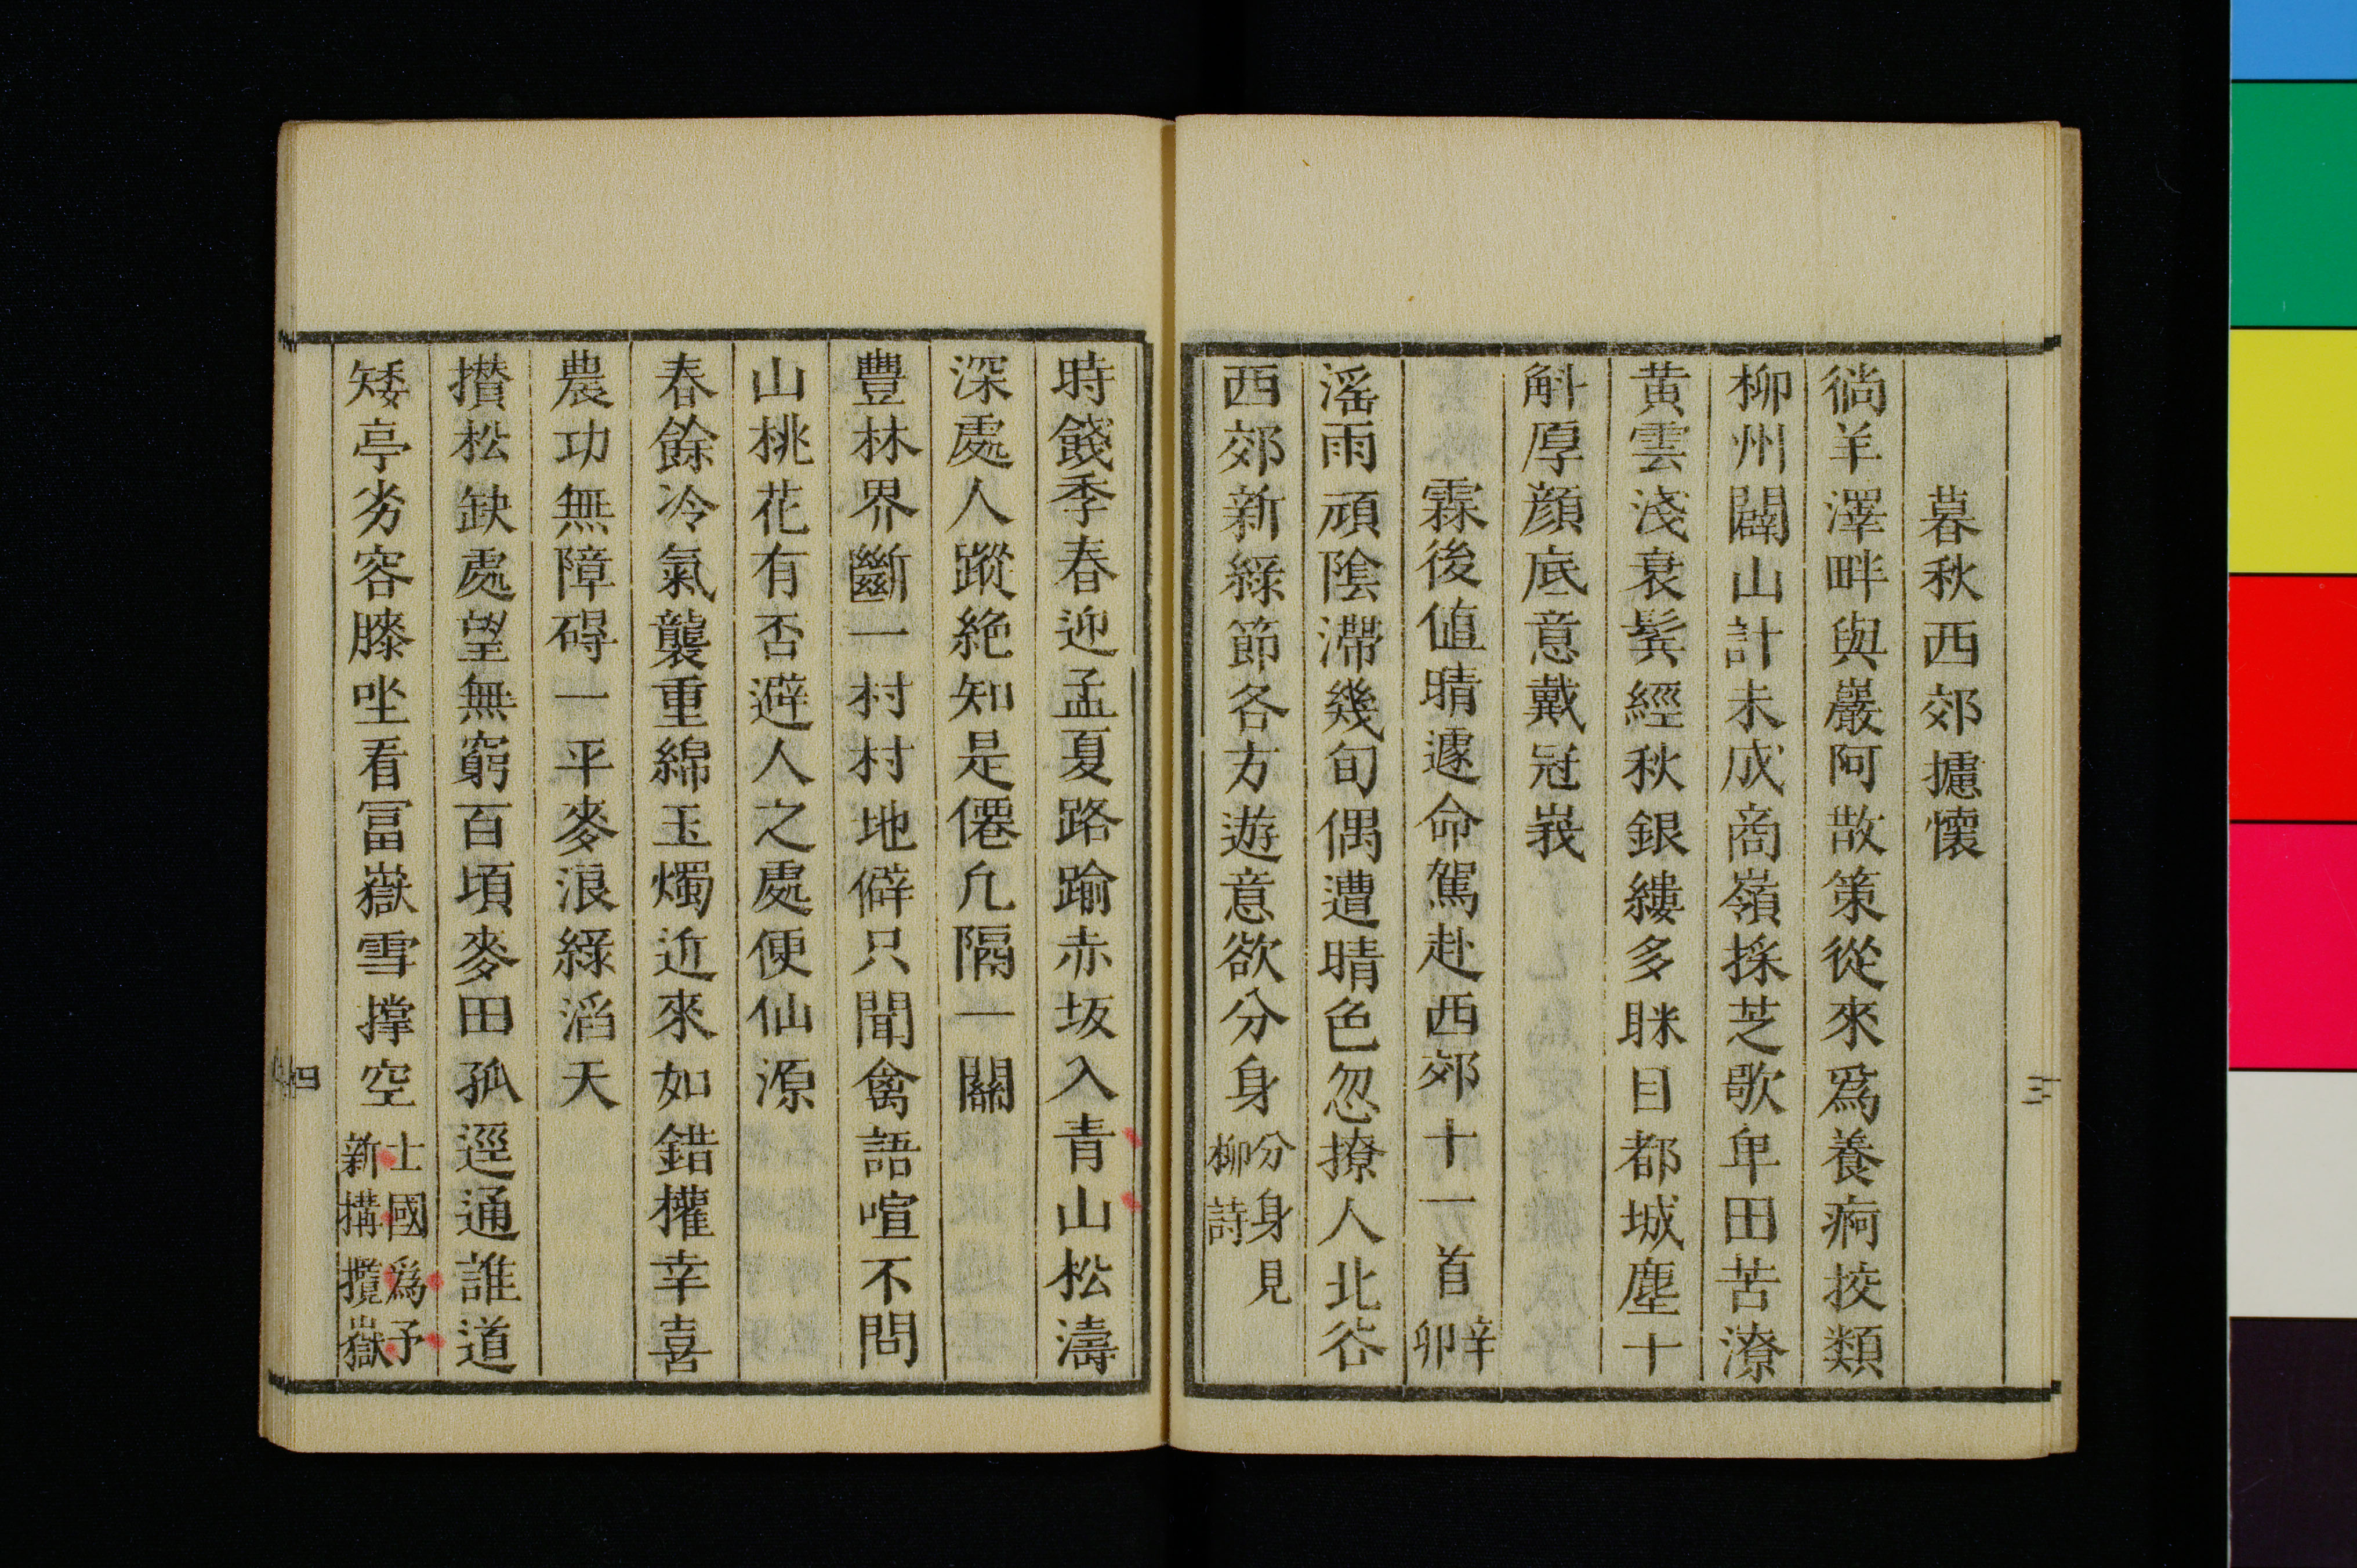 三
暮秋西郊攄懷
徜羊澤畔與巖阿散策從來爲養痾挍類
柳州闢山計未成商嶺採芝歌卑田苦潦
黄雲淺衰鬂經秋銀縷多眯目都城塵十
斛厚顔底意戴冠峩
霖後値晴遽命駕赴西郊十一首辛卯
滛雨頑陰滯幾旬偶遭晴色忽撩人北谷
西郊新綠節各方遊意欲分身分身見柳詩
時餞季春迎孟夏路踰赤坂入青山松濤
深處人蹤絶知是僊凢隔一關
豊林界斷一村村地僻只聞禽語喧不問
山桃花有否避人之處便仙源
春餘冷氣襲重綿玉燭近來如錯權幸喜
農功無障碍一平麥浪綠滔天
攅松缺處望無窮百頃麥田孤逕通誰道
矮亭劣容膝坐看冨嶽雪撑空士國爲予新搆攬嶽
四